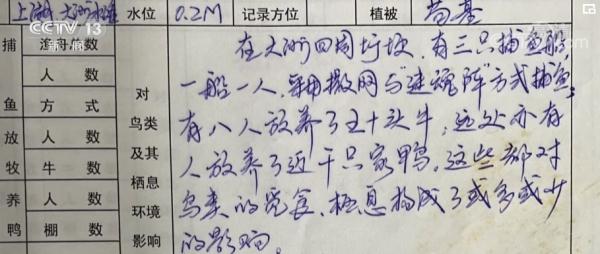 上湖 大湖水淹 水位 0.2M 记录方位 植被 苔草
CCTV 13
新闻
捕鱼 渔舟位数
人数
方式
放牧 人数
牛数
养鸭 人数
棚数
对鸟类及其栖息环境影响
在大湖四周圩坝,有三只捕鱼船,
一船一人,采用撒网与"迷魂阵"方式捕鱼;
有八人放养了五十头牛,远处亦有
人放养了近千只家鸭。这些都对
鸟类的觅食、栖息构成了或多或少
的影响。